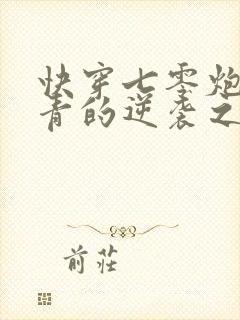 快穿七零炮
青的逆袭之
前莊